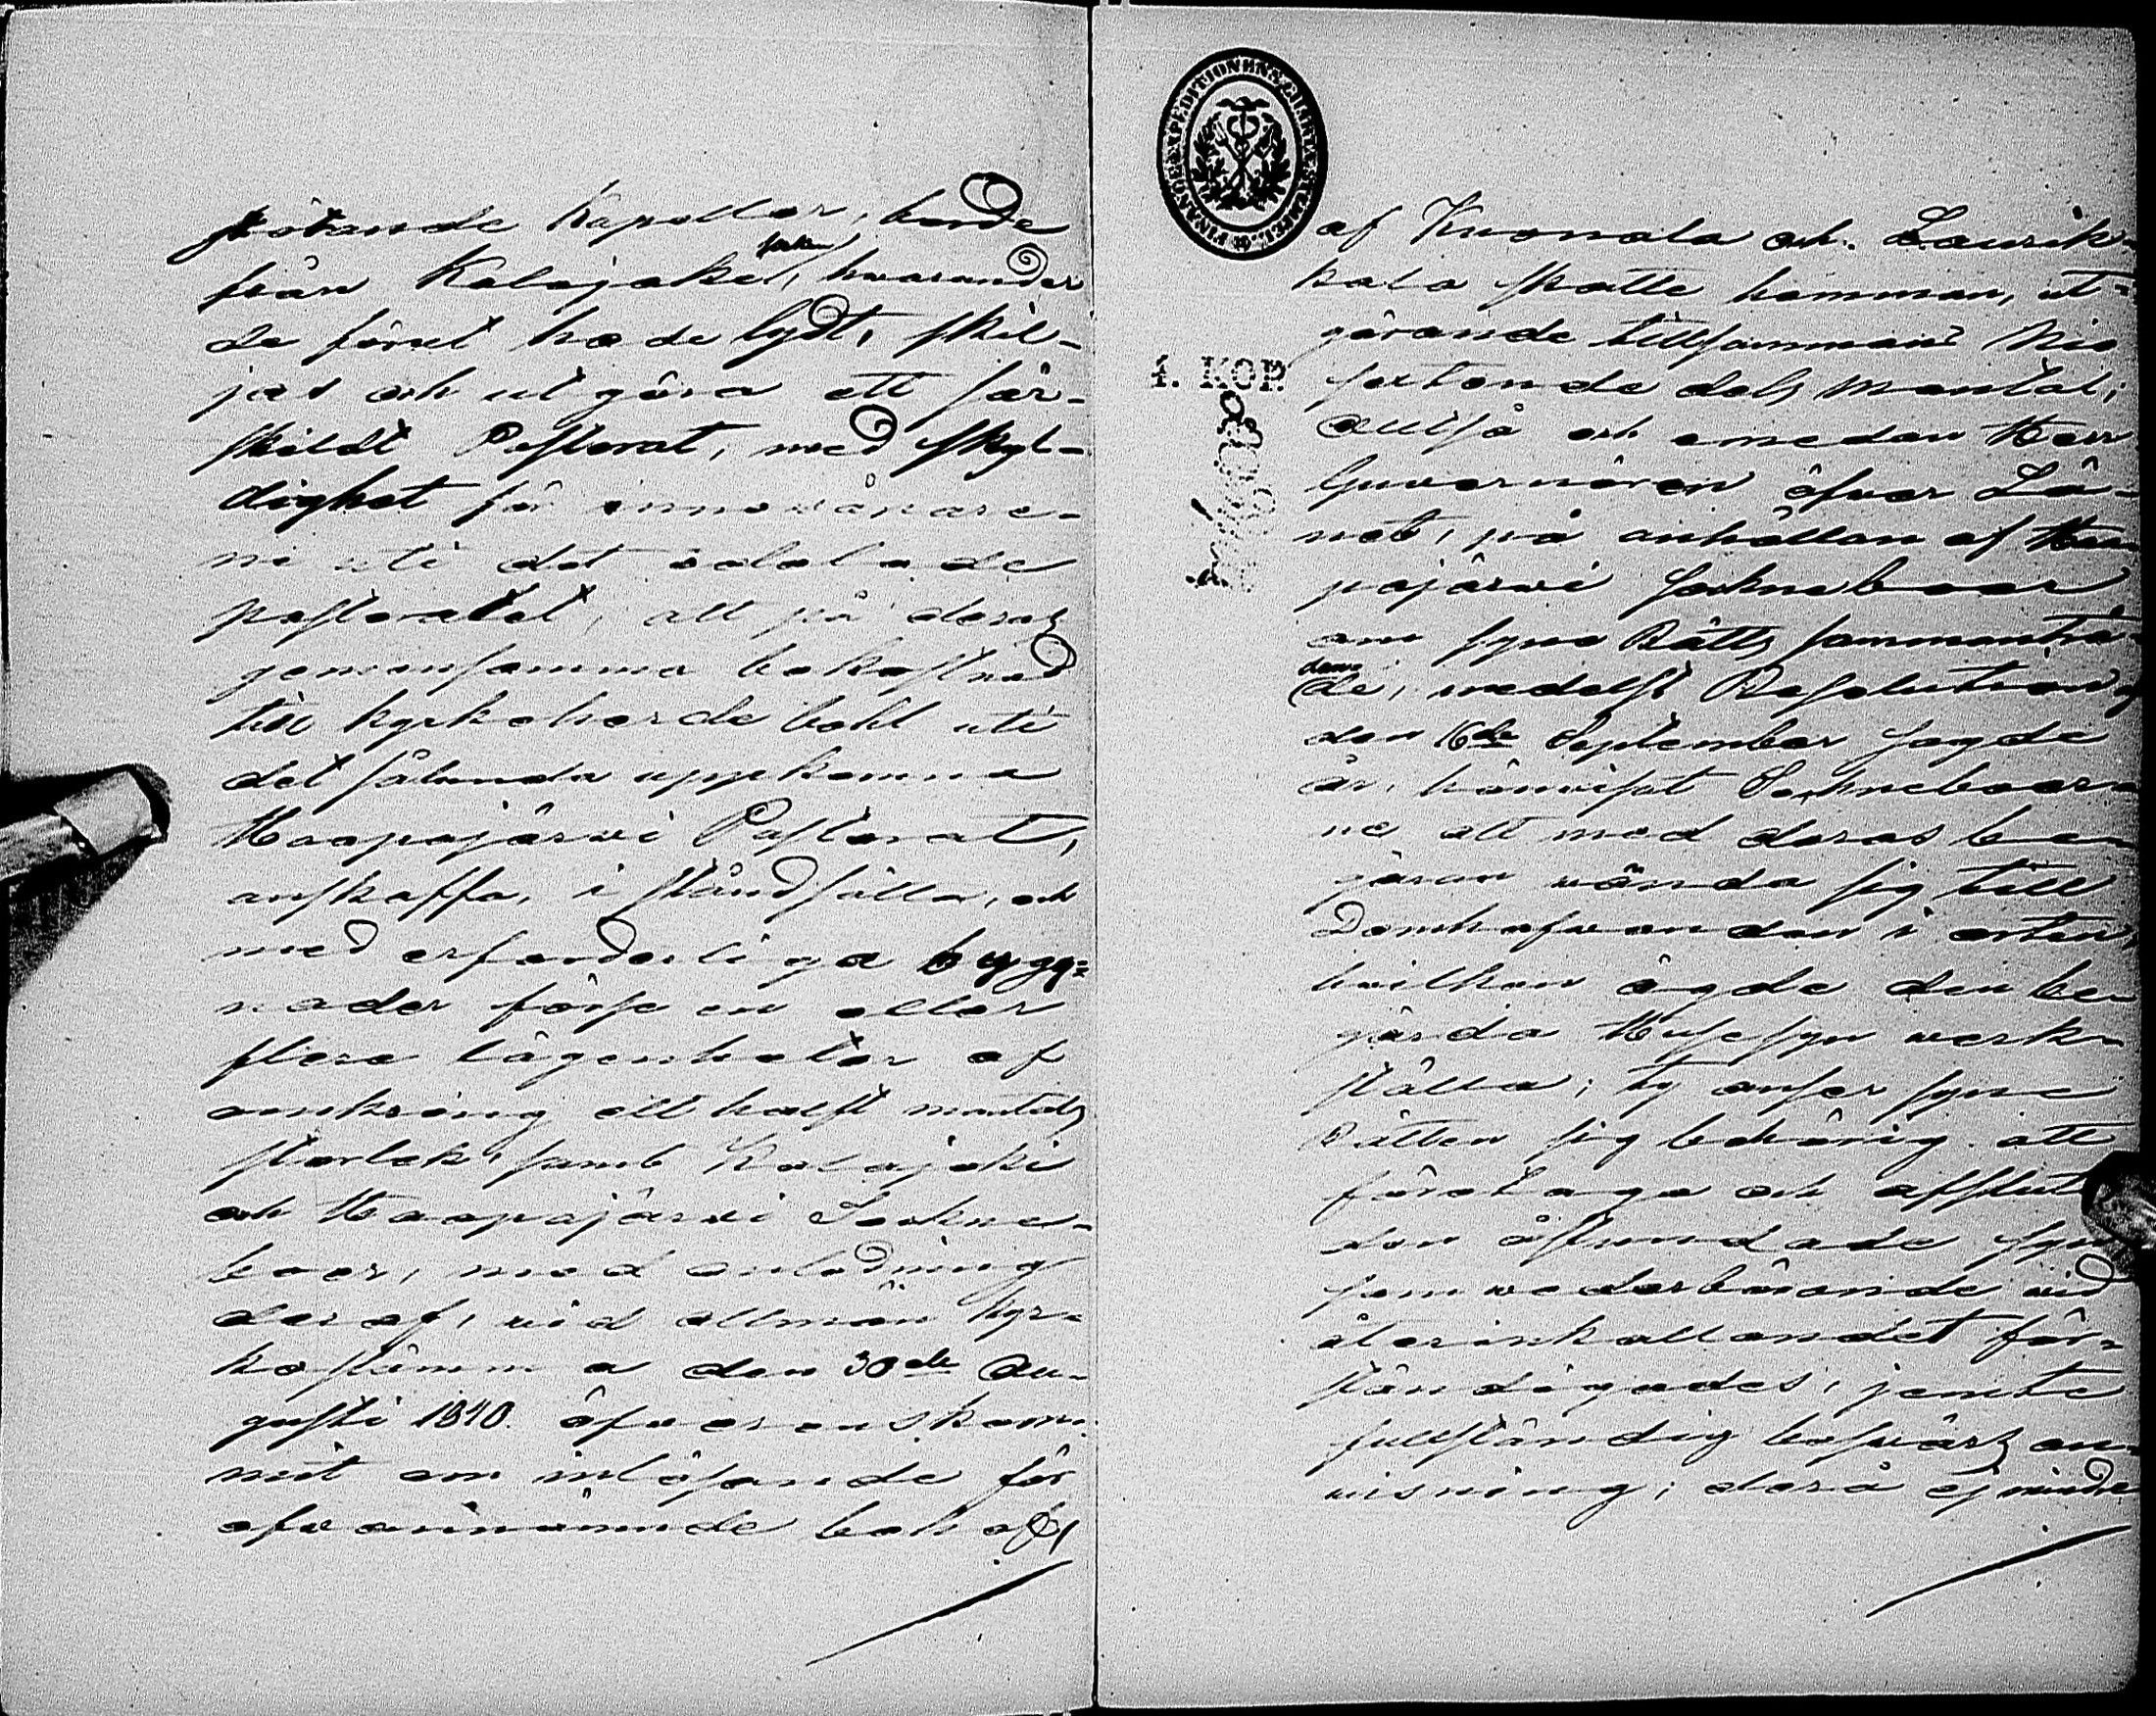 stötande Kapeller, borde
från Kalajoki socken, hwarunder
de förut hade lydt, skil-
jas och utgöra ett sär-
skildt Pastorat, med skyl-
dighet för innewånare-
ne uti det sålalunde
pastoratet, att på deras
gemensamma bekostnad
till kyrkoherde bohl uti
det sålunda uppkomna
Haapajärwi Pastorat,
anskaffa, i ståndsätta, och
med erforderliga bygg=
nader förse en eller
flera lägenheter af
omkring ett halft mantals
storlek, samt Kalajoki
och Haapajärwi Sockne-
boer, med anledning
deraf, wid allmän kyr-
kostämma den 30de Au-
gusti 1840. öfwerenskom-
mit om inlösande för
ofwannämnde behof,
FINANCEEXPEDITIONENS CHARTÆ STEMPEL
4. KOP.
af Kuonala och Laurik-
kala skatte hemman, ut=
görande tillsammans Nio
sextonde dels mantal;
Alltså och emedan Herr
Guvernören öfver Lä-
net, på anhållan af Haa-
pajärwi Sockneboer
om syne Rätts sammanträ-
dande, medelst Resolution
den 16de September sagde
år, hänwisat Sockneboer-
ne att med deras be-
gäran wända sig till
Domhafwanden i orten,
hvilken ägde den be-
gärda Husesyn werk-
ställa; ty anser syne
Rätten sig behörig att
företaga och afsluta
den åstundade syn
som wederbörande wid
återinkallandet för-
ständigades, jemte
fullständig beswärs an-
wisning; derå ej mindre